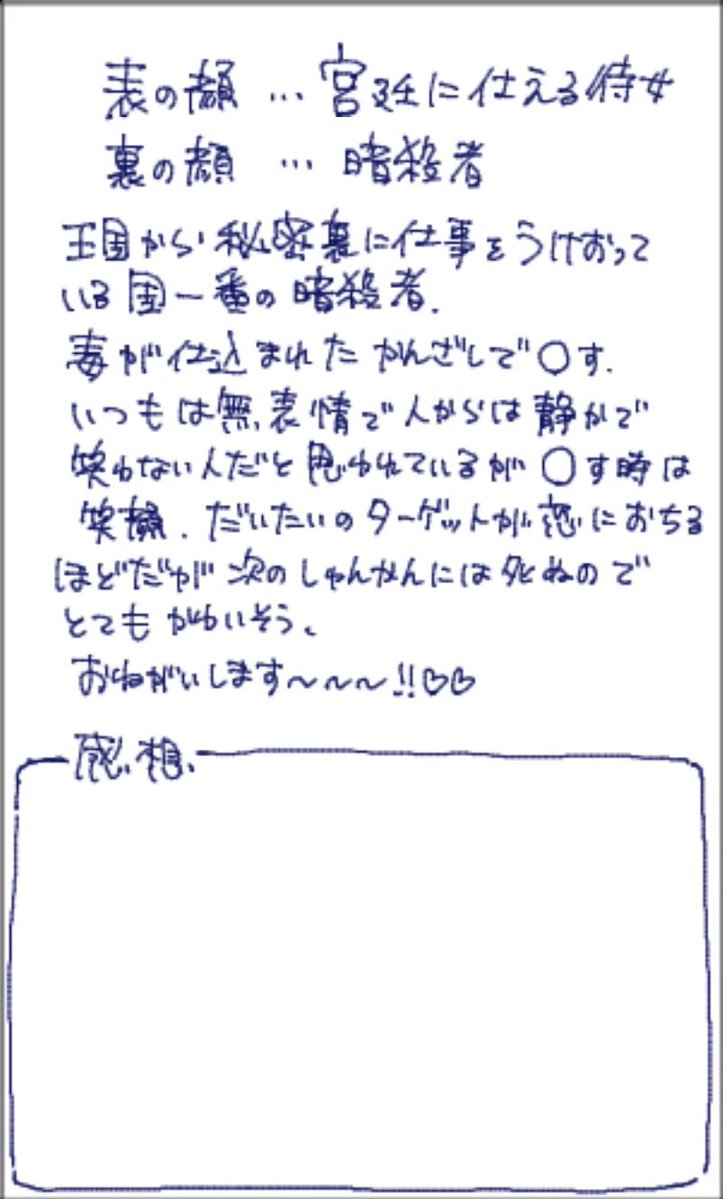 表の顔 … 宮廷に仕える侍女
裏の顔 … 暗殺者
王国から秘密裏に仕事をうけおって
いる国一番の暗殺者.
毒が仕込まれたかんざしで〇す.
いつもは無表情で人からは静かで
笑わない人だと思われているが〇す時は
笑顔. だいたいのターゲットが恋におちる
ほどだが次のしゅんかんには死ぬので
とてもかわいそう、
おねがいします〜〜〜!!♡♡
感想